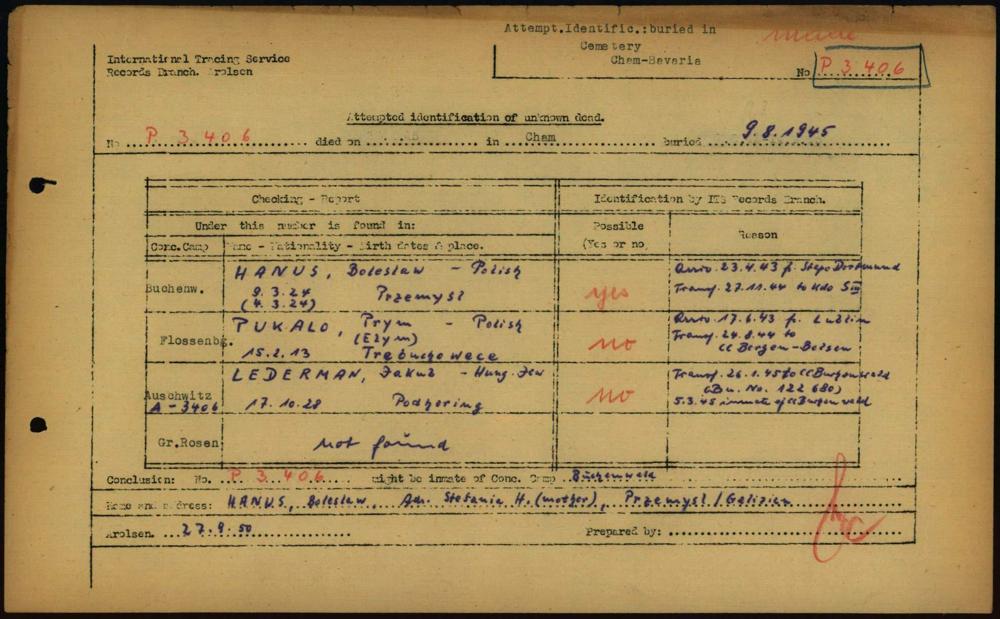 Attempt.Identific.:buried in
Cemetery
Cham-Bavaria
International Tracing Service
Records Branch. Arolsen
No P 3 406
Attempted identification of unknown dead.
No P 3 406 died on in Cham buried 9.8.1945
Checking - Report
Identification by ITS Records Branch.
Under this number is found in:
Possible
(Yes or no)
Reason
Conc.Camp
Name - Nationality - Birth dates & place.
Buchenw.
HANUS, Boleslaw - Polish
9.3.24 Przemysl
(4.3.24)
yes
Arriv. 23.4.43 f. Stapo Dortmund
Transf. 27.11.44 to Kdo S III
Flossenbg.
PUKALO, Prym - Polish
(Ezym)
15.2.13 Trebuchowece
no
Arriv. 17.6.43 f. Lublin
Transf. 24.8.44 to
CC Bergen-Belsen
Auschwitz
A-3406
LEDERMAN, Jakub - Hung. Jew
17.10.28 Podhering
no
Transf. 26.1.45 to CC Buchenwald
(Bu. No. 122 680)
5.3.45 inmate of CC Buchenwald
Gr.Rosen
not found
Conclusion: No. P 3 406 might be inmate of Conc. Camp Buchenwald
Name and address: HANUS, Boleslaw, Adr. Stefania H. (mother), Przemysl / Galizien
Arolsen. 27.9.50 Prepared by: